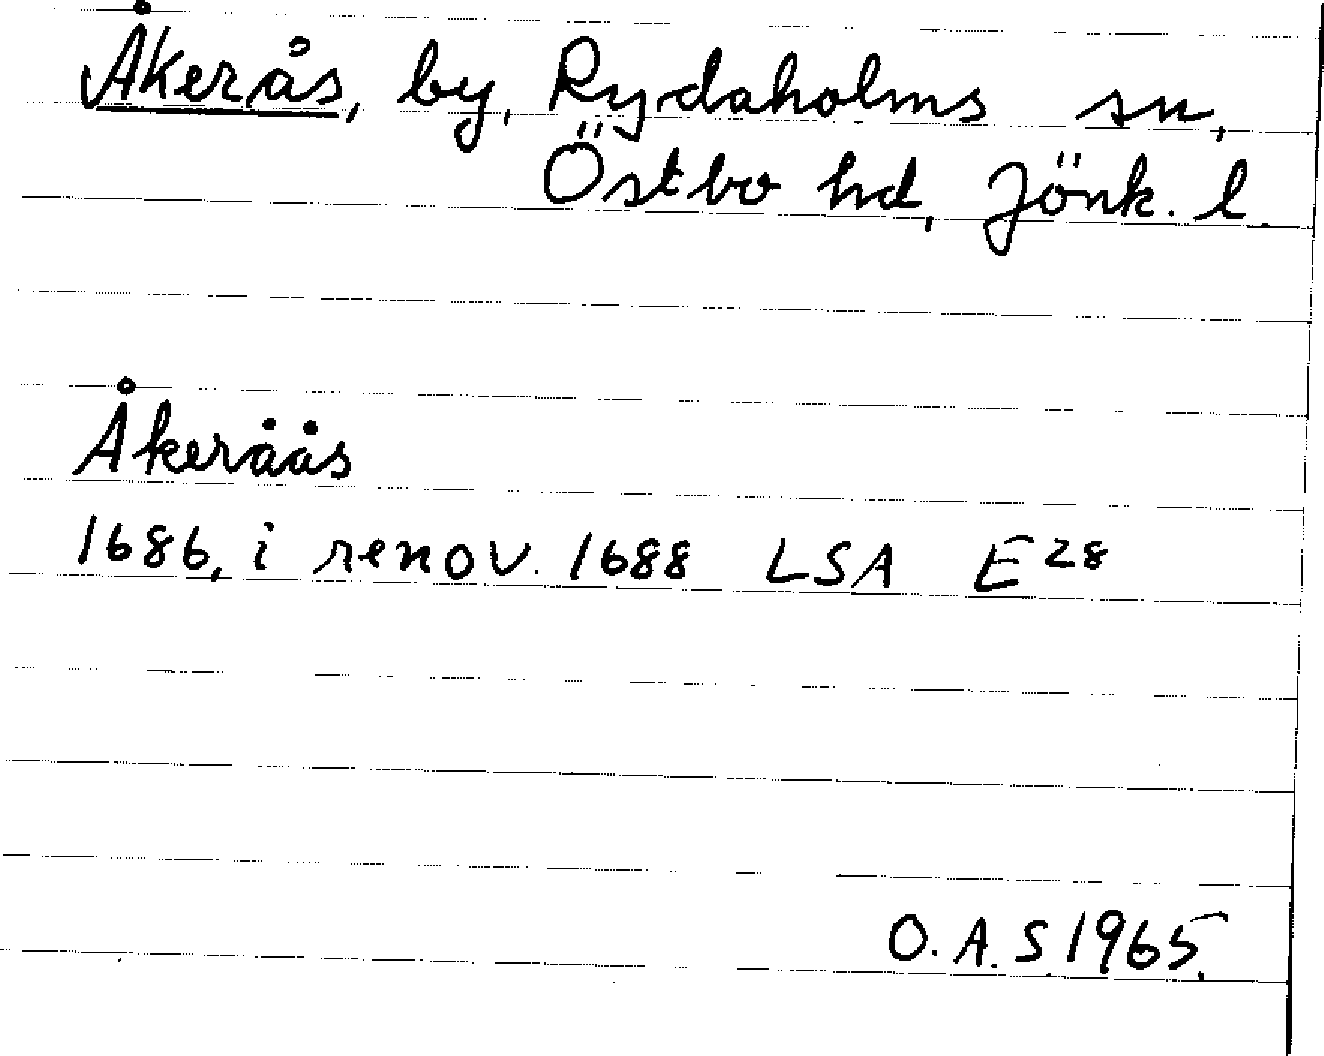 Åkerås, by, Rydaholms sn,
Östbo hd, Jönk. l.
Åkeråås
1686, i renov. 1688 LSA E28
O. A. S. 1965.